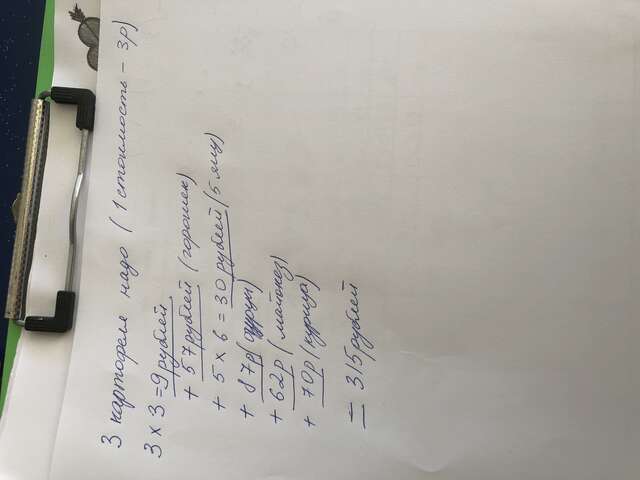 3 картофеля надо (1 стоимость - 3р)
3 x 3 = 9 рублей
+ 57 рублей (горошек)
+ 5 x 6 = 30 рублей (5 яиц)
+ 87р (огурцы)
+ 62р (майонез)
+ 70р (курица)
= 315 рублей